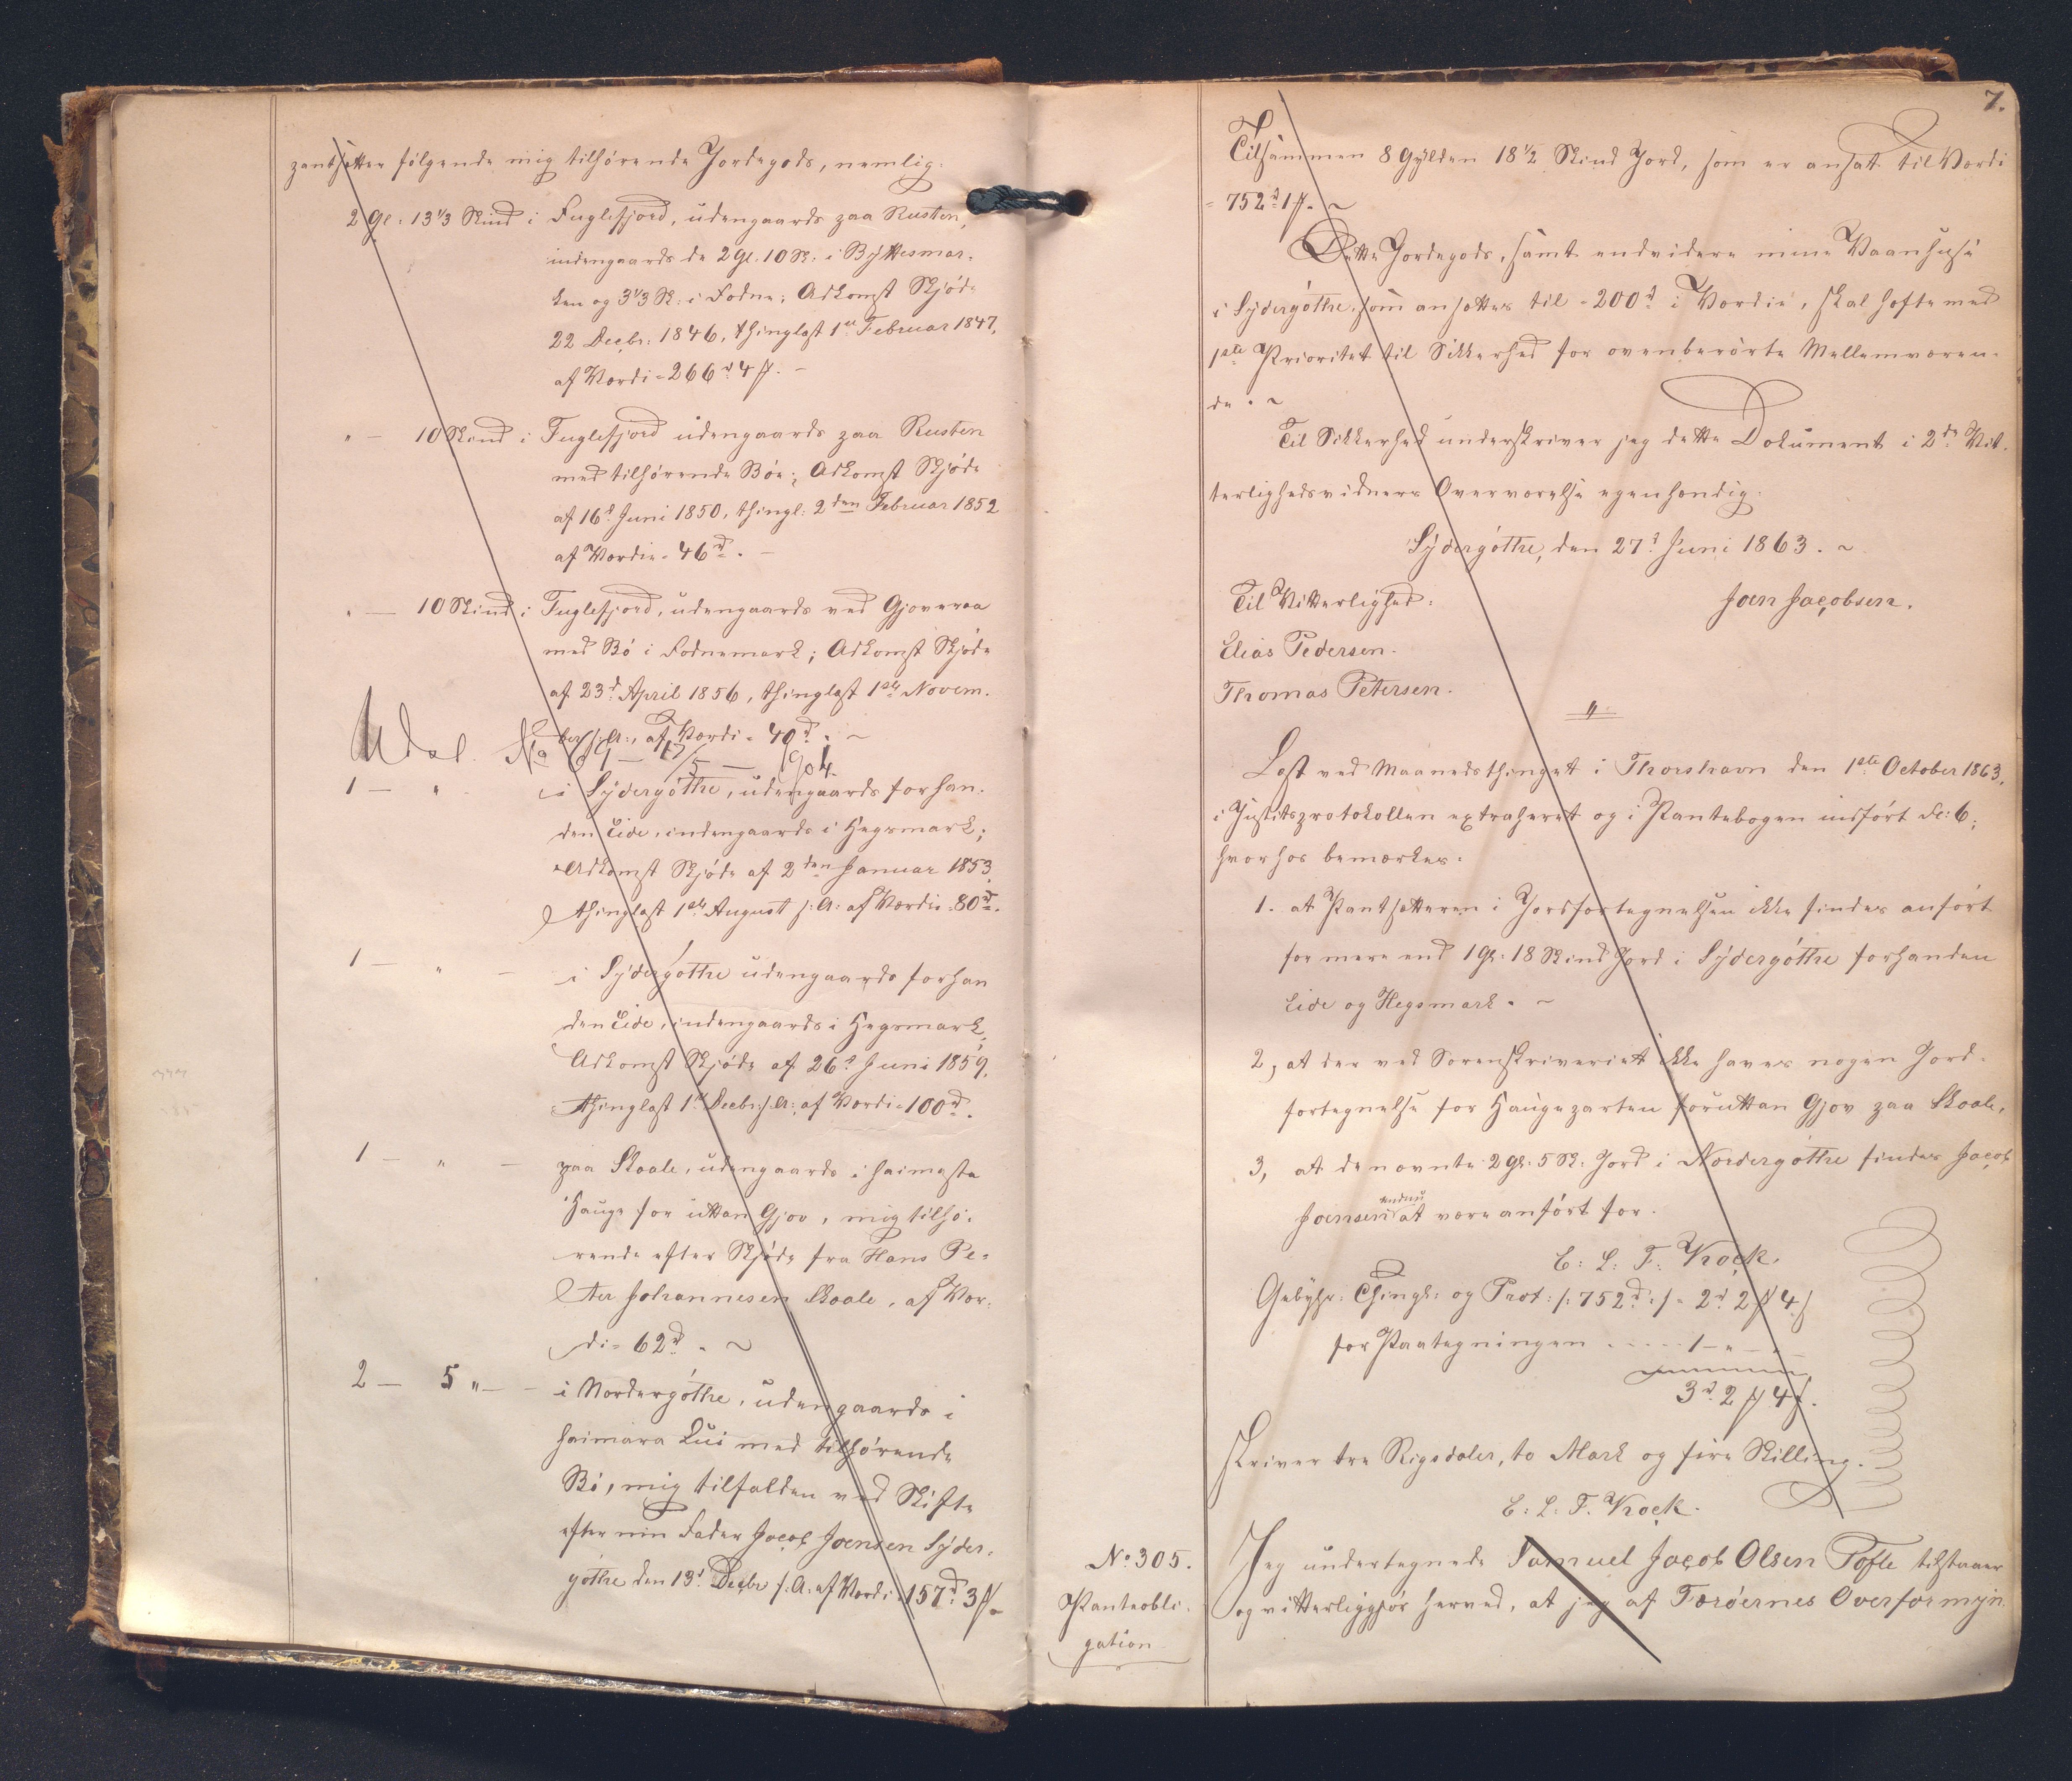 pantsætter følgende mig tilhørende Jordegods, nemlig:
2 Gl: 13 1/3 Skind i Fuglefjord, udengaards paa Rusten,
indengaards de 2 Gl. 10 Sk: i Byttesmar-
ken og 3 1/3 Sk: i Fodne; Adkomst Skjøde
22 Decbr: 1846, thinglæst 1ste Februar 1847,
af Værdi = 266 rd 4 ₻. -
" - 10 Skind i Fuglefjord udengaards paa Rusten
med tilhørende Bøe; Adkomst Skjøde
af 16d Juni 1850, thingl: 2den Februar 1852
af Værdie = 46 rd. -
" - 10 Skind i Fuglefjord, udengaards ved Gjoveraa
med Bø i Fodnemark; Adkomst Skjøde
af 23d April 1856, thinglæst 1ste Novem-
ber s: A:, af Værdi = 40 rd. ~
Udsl. No 69 - 17/5 - 1904.
1 - " - i Sydergöthe, udengaards forhan-
den Eide, indengaards i Hegsmark;
Adkomst Skjøde af 2den Januar 1853,
thinglæst 1ste August s: A: af Værdie = 80 rd.
1 - " - i Sydergöthe udengaards forhan
den Eide, indengaards i Hegsmark,
Adkomst Skjøde af 26d Juni 1859,
thinglæst 1ste Decbr: s: A: af Værdi = 100 rd.
1 - " - paa Skaale, udengaards i haimasta
Hauge for uttan Gjov, mig tilhø-
rende efter Skjøde fra Hans Pe-
ter Johannesen Skaale, af Vær-
di = 62 rd. ~
2 - 5 " - - i Nordergöthe, udengaards i
haimara Lui med tilhørende
Bø, mig tilfalden ved Skifte
efter min Fader Jacob Joensen Syder-
göthe den 13d Decbr s: A: af Værdi = 157 rd 3 ₻.
7.
Tilsammen 8 Gylden 18 1/2 Skind Jord, som er ansat til Værdi
= 752 rd 1 ₻. ~
Dette Jordegods, samt endvidere mine Vaanhuse
i Sydergöthe, som ansættes til = 200 rd i Værdie, skal hefte med
1ste Prioritet til Sikkerhed for ovenberørte Mellemværen-
de. ~
Til Sikkerhed underskriver jeg dette Dokument i 2de Vit-
terlighedsvidners Overværelse egenhændig.
Sydergöthe, den 27d Juni 1863. ~
Til Vitterlighed: Joen Jacobsen.
Elias Pedersen.
Thomas Petersen.
"
Læst ved Maanedsthinget i Thorshavn den 1ste October 1863,
i Justitsprotokollen extraheret og i Pantebogen indført Fl: 6;
hvorhos bemærkes:
1. at Pantsætteren i Jordfortegnelsen ikke findes anført
for mere end 1 Gl: 18 Skind Jord i Sydergöthe forhanden
Eide og Hegsmark. ~
2, at der ved Sorenskriveriet ikke haves nogen Jord-
fortegnelse for Haugeparten foruttan Gjov paa Skaale,
3, at de nævnte 2 Gl: 5 Sk: Jord i Nordergöthe findes Jacob
Joensen endnu at være anført for.
E: L: T: Krock.
Gebyhr: Thingl: og Prot: /: 752 rd :/ = 2 rd 2 ₻ 4 ß
for Paategningen ..... 1 - " - "
3 rd 2 ₻ 4 ß.
skriver tre Rigsdaler, to Mark og fire Skilling.
E: L: T. Krock.
No 305.
Panteobli-
gation
Jeg undertegnede Samuel Jacob Olsen Tofte tilstaaer
og vitterliggjør herved, at jeg af Færøernes Overformyn-